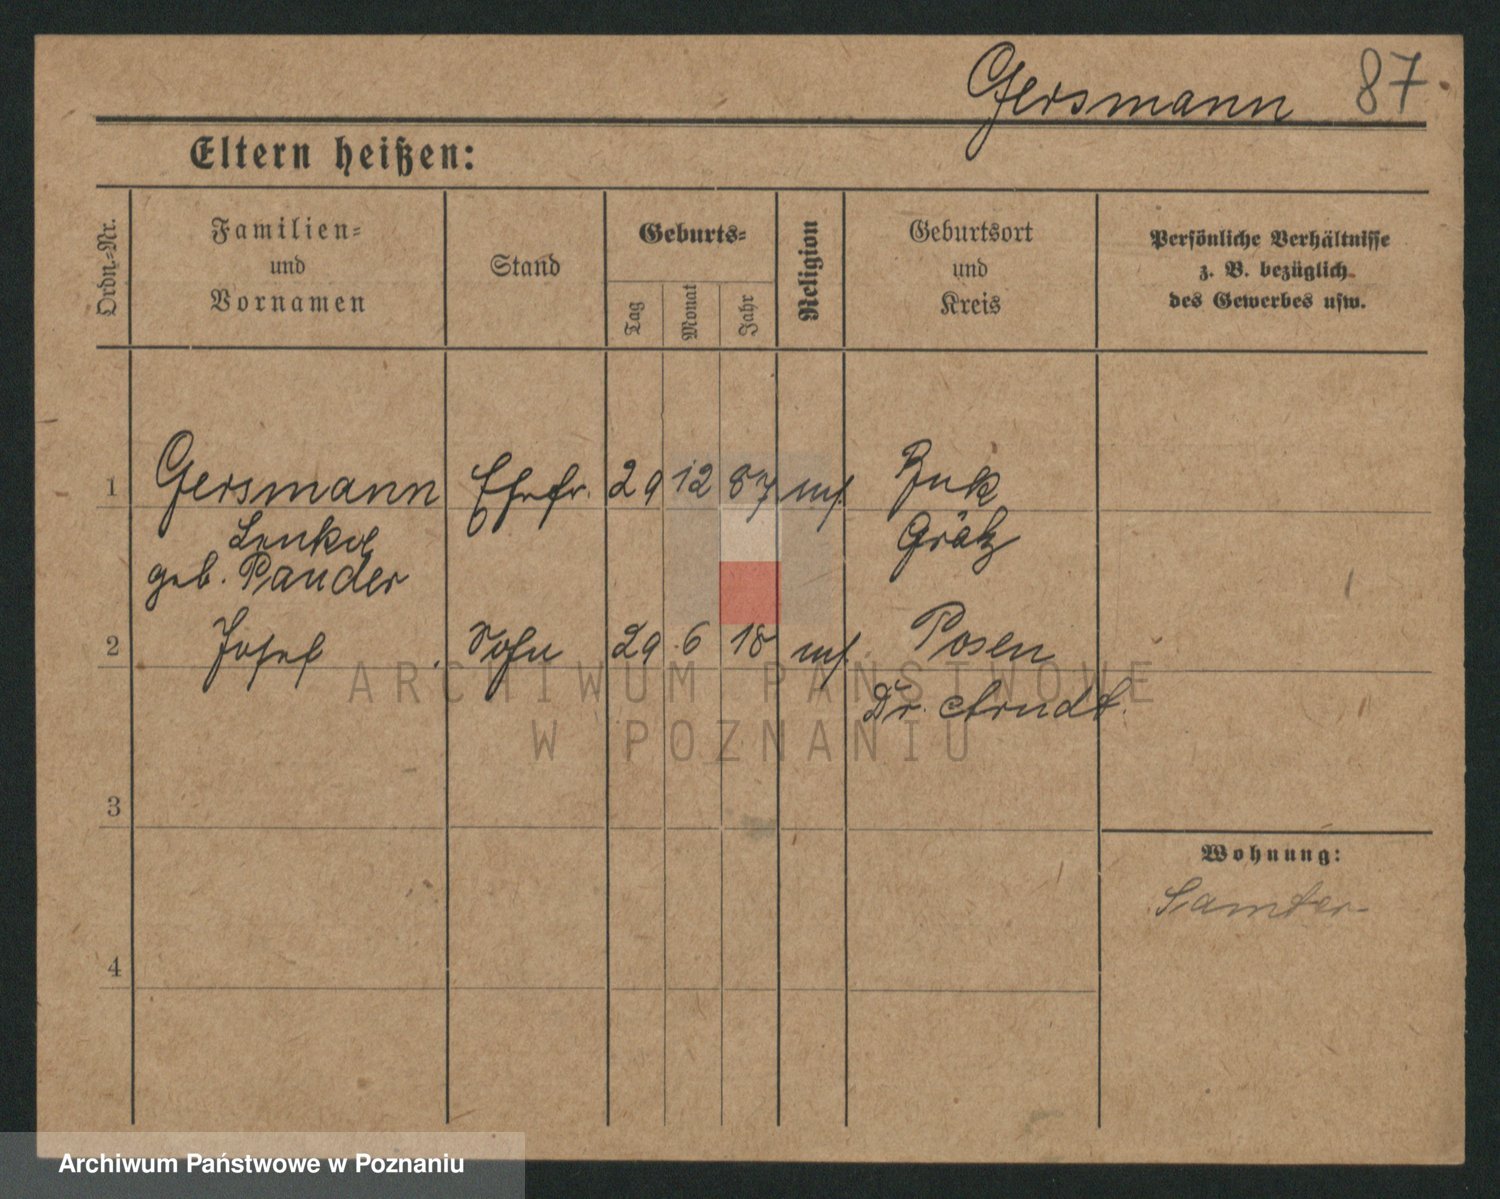 Gersmann 87.
Eltern heißen:
Ordn.-Nr. Familien- und Vornamen Stand Geburts- Tag Monat Jahr Religion Geburtsort und Kreis Persönliche Verhältnisse z. B. bezüglich des Gewerbes usw.
1 Gersmann Ehefr. 29 12 87 mos. Buk
Grätz
geb. Pander
2 Josef Sohn 29 6 18 mos. Posen
Dr. Arndt.
3
Wohnung:
Samter
4
ARCHIWUM PAŃSTWOWE
W POZNANIU
Archiwum Państwowe w Poznaniu